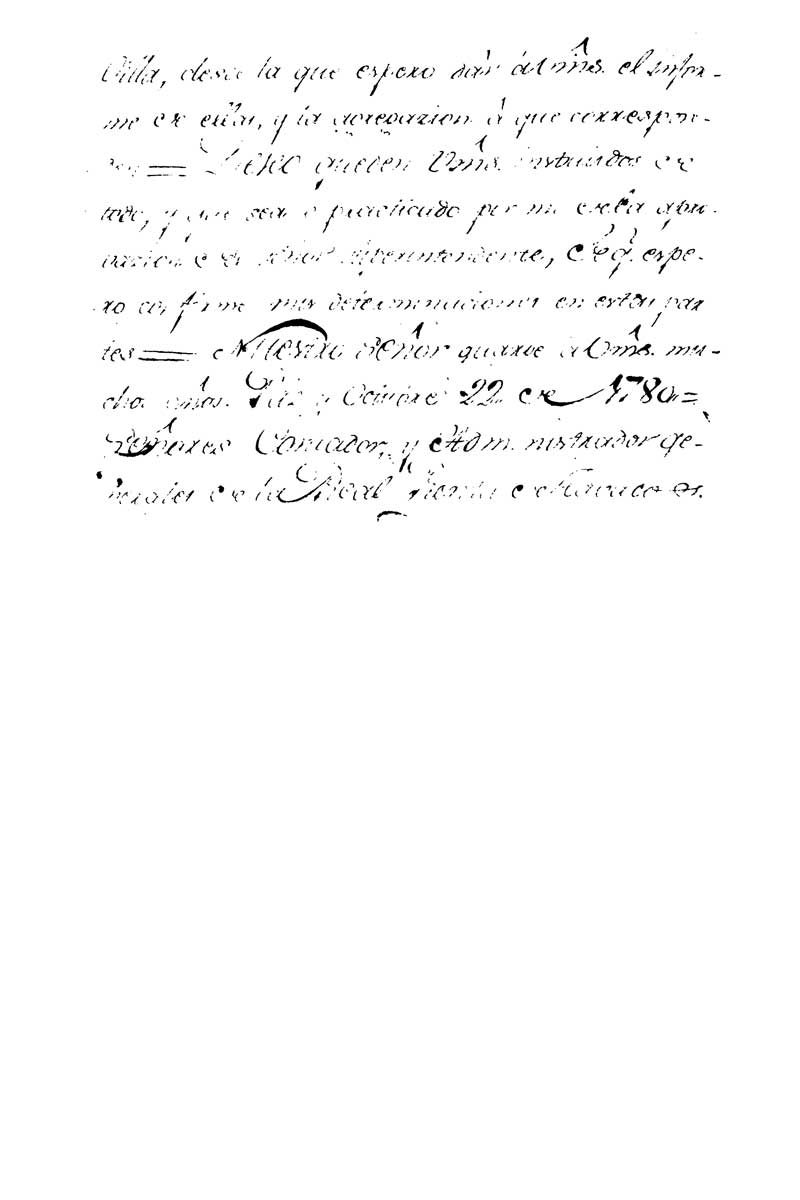 Villa, desde la que espero dár á Vm̃s. el infor-
me de ellas, y la agregazion á que correspon-
den = Deseo queden Vm̃s. instruidos de
todo, y que sea lo practicado por mi de la apro-
vacion de el señor Superintendente, de q.e espe-
ro confirme mis determinaciones en estas par
tes = Nuestro Señor guarde á Vm̃s. mu-
chos años. Paz y Octubre 22 de 1780=
Señores Contador, y Administrador ge-
nerales de la Real Renta de Tavacos.